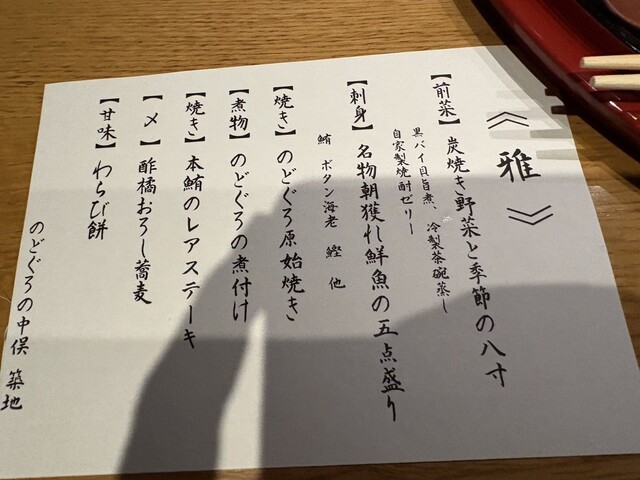 《 雅 》
【前菜】炭焼き野菜と季節の八寸
黒バイ貝旨煮、冷製茶碗蒸し
自家製焼酎ゼリー
【刺身】名物朝獲れ鮮魚の五点盛り
鮪 ボタン海老 鰹 他
【焼き】のどぐろ原始焼き
【煮物】のどぐろの煮付け
【焼き】本鮪のレアステーキ
【〆】酢橘おろし蕎麦
【甘味】わらび餅
のどぐろの中俣 築地